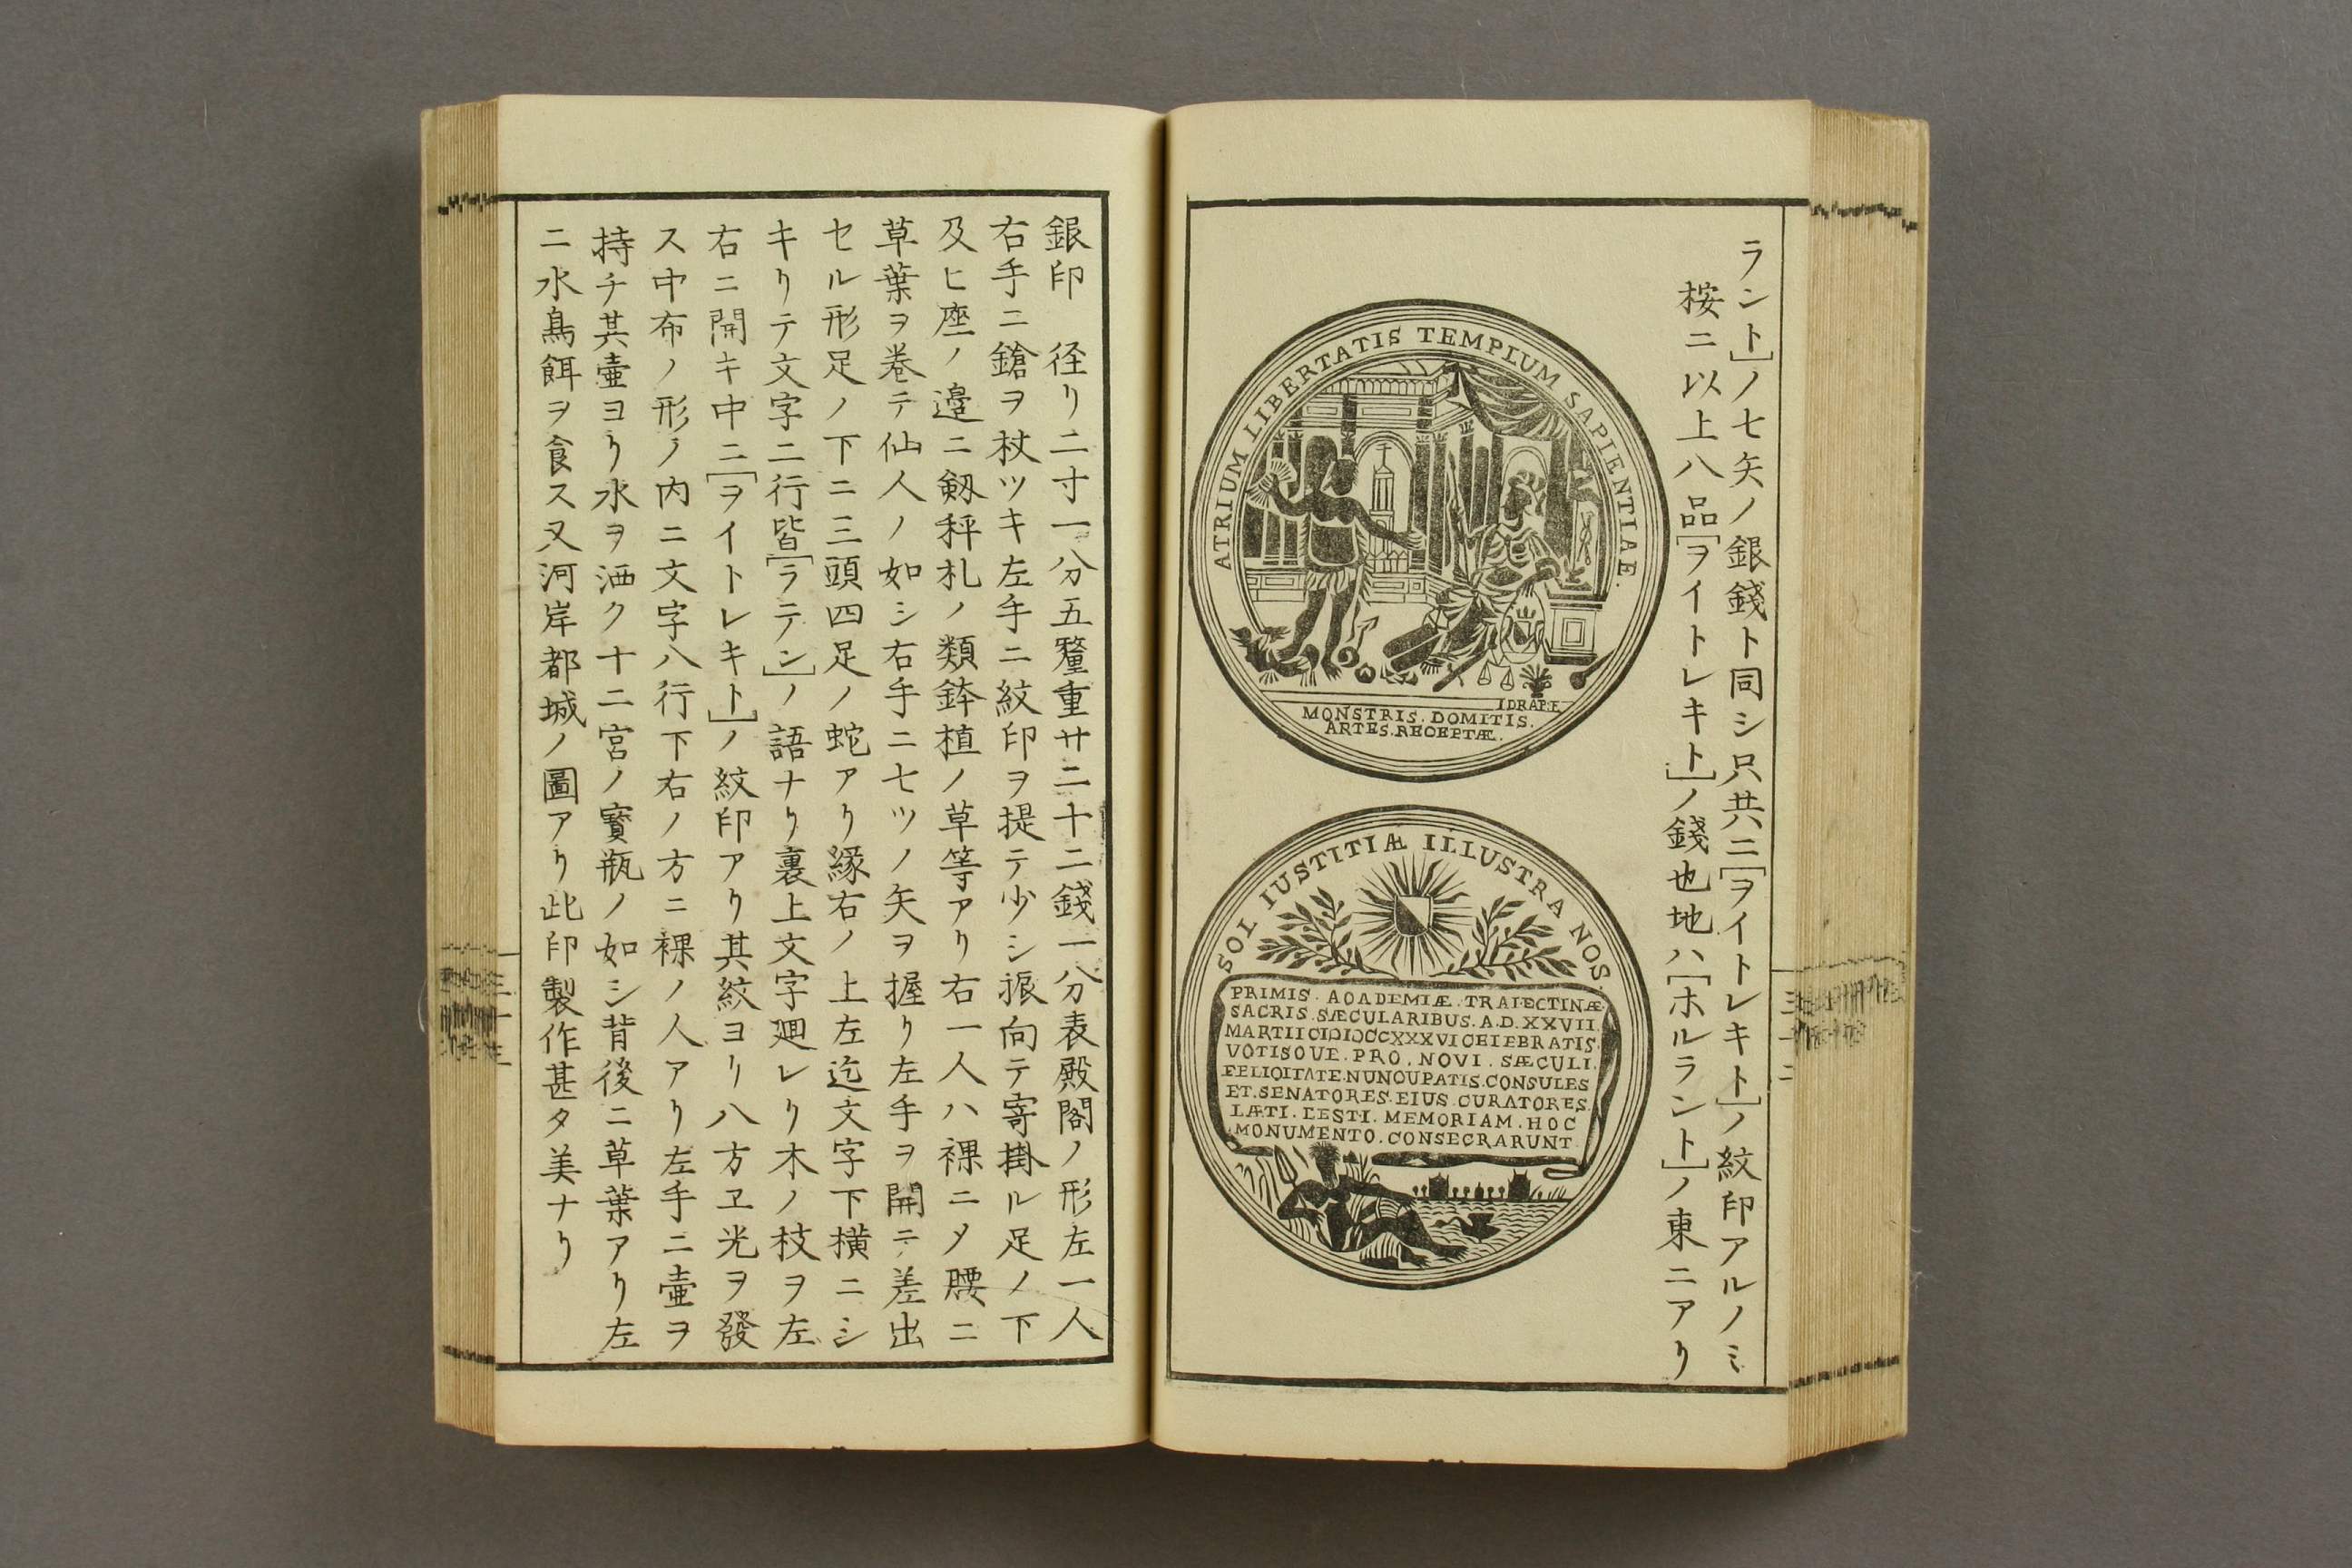 ラント]ノ七矢ノ銀錢ト同シ只共ニ[ヲイトレキト]ノ紋印アルノミ
桉ニ以上八品[ヲイトレキト]ノ錢也地ハ[ホルラント]ノ東ニアリ
ATRIUM LIBERTATIS TEMPLUM SAPIENTIAE.
I DRAPE
MONSTRIS. DOMITIS.
ARTES. RECEPTÆ.
SOL IUSTITIÆ ILLUSTRA NOS.
PRIMIS. AOADEMIÆ. TRAIECTINÆ
SACRIS. SÆCULARIBUS. A.D. XXVII.
MARTII CIƆIƆCCXXXVI CEIEBRATIS.
VOTISQUE. PRO. NOVI. SÆCULI.
FELIQITATE. NUNOUPATIS. CONSULES
ET. SENATORES. EIUS. CURATORES.
LÆTI. LESTI. MEMORIAM. HOC
MONUMENTO. CONSECRARUNT
銀印 径リ二寸一分五釐重サ二十二錢一分表殿閣ノ形左一人
右手ニ鎗ヲ杖ツキ左手ニ紋印ヲ提テ少シ振向テ寄掛ル足ノ下
及ヒ座ノ邉ニ剱秤札ノ類鉢植ノ草等アリ右一人ハ裸ニメ腰ニ
草葉ヲ巻テ仙人ノ如シ右手ニ七ツノ矢ヲ握リ左手ヲ開ニ差出
セル形足ノ下ニ三頭四足ノ蛇アリ縁右ノ上左迄文字下横ニシ
キリテ文字二行皆[ラテン]ノ語ナリ裏上文字廻レリ木ノ枝ヲ左
右ニ開キ中ニ[ヲイトレキト]ノ紋印アリ其紋ヨリ八方ヱ光ヲ發
ス中布ノ形ノ内ニ文字八行下右ノ方ニ裸ノ人アリ左手ニ壷ヲ
持チ其壷ヨリ水ヲ洒ク十二宮ノ寳瓶ノ如シ背後ニ草葉アリ左
ニ水鳥餌ヲ食ス又河岸都城ノ圖アリ此印製作甚タ美ナリ